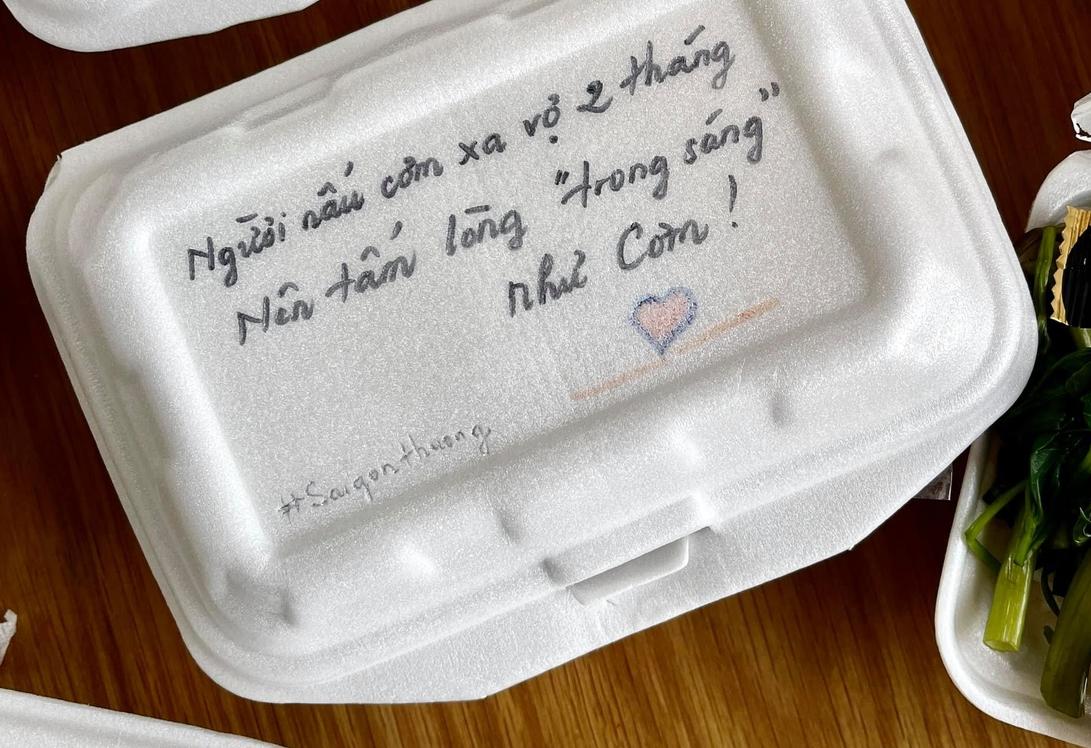 Người nấu cơm xa vợ 2 tháng
Nên tấm lòng "trong sáng"
như Cơm !
#Saigonthuong